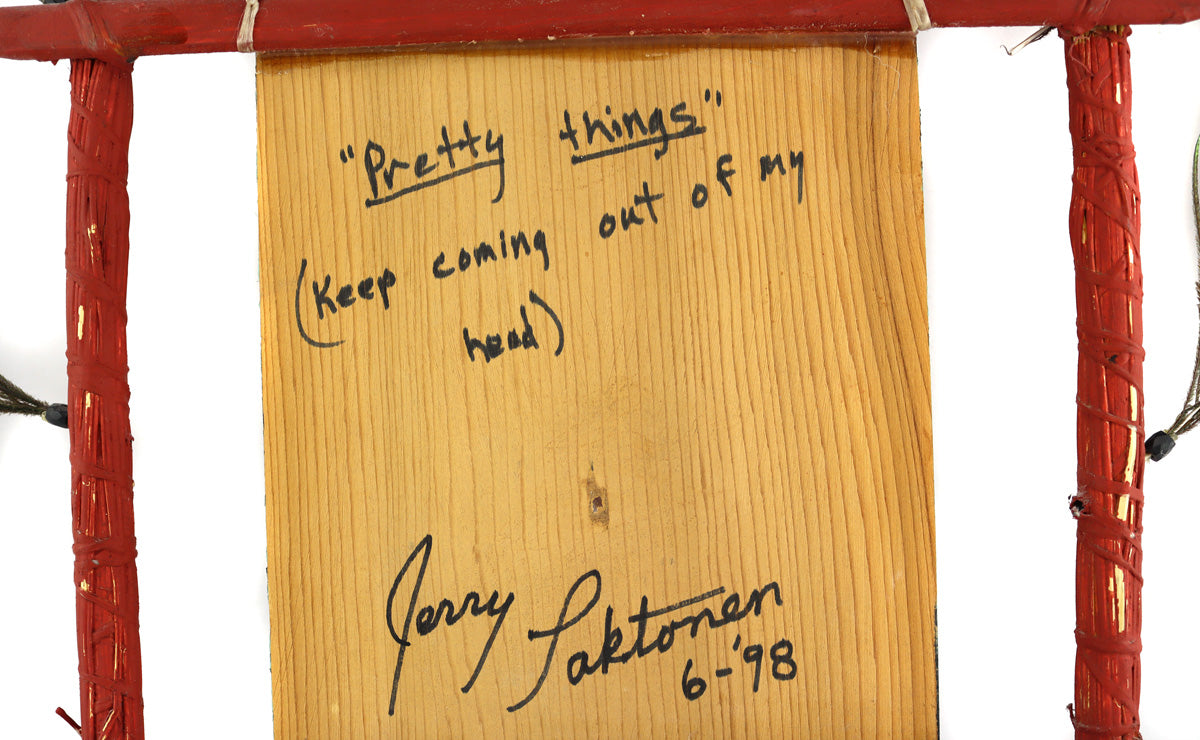 "Pretty things"
(Keep coming out of my
head)
Jerry Laktonen
6-'98